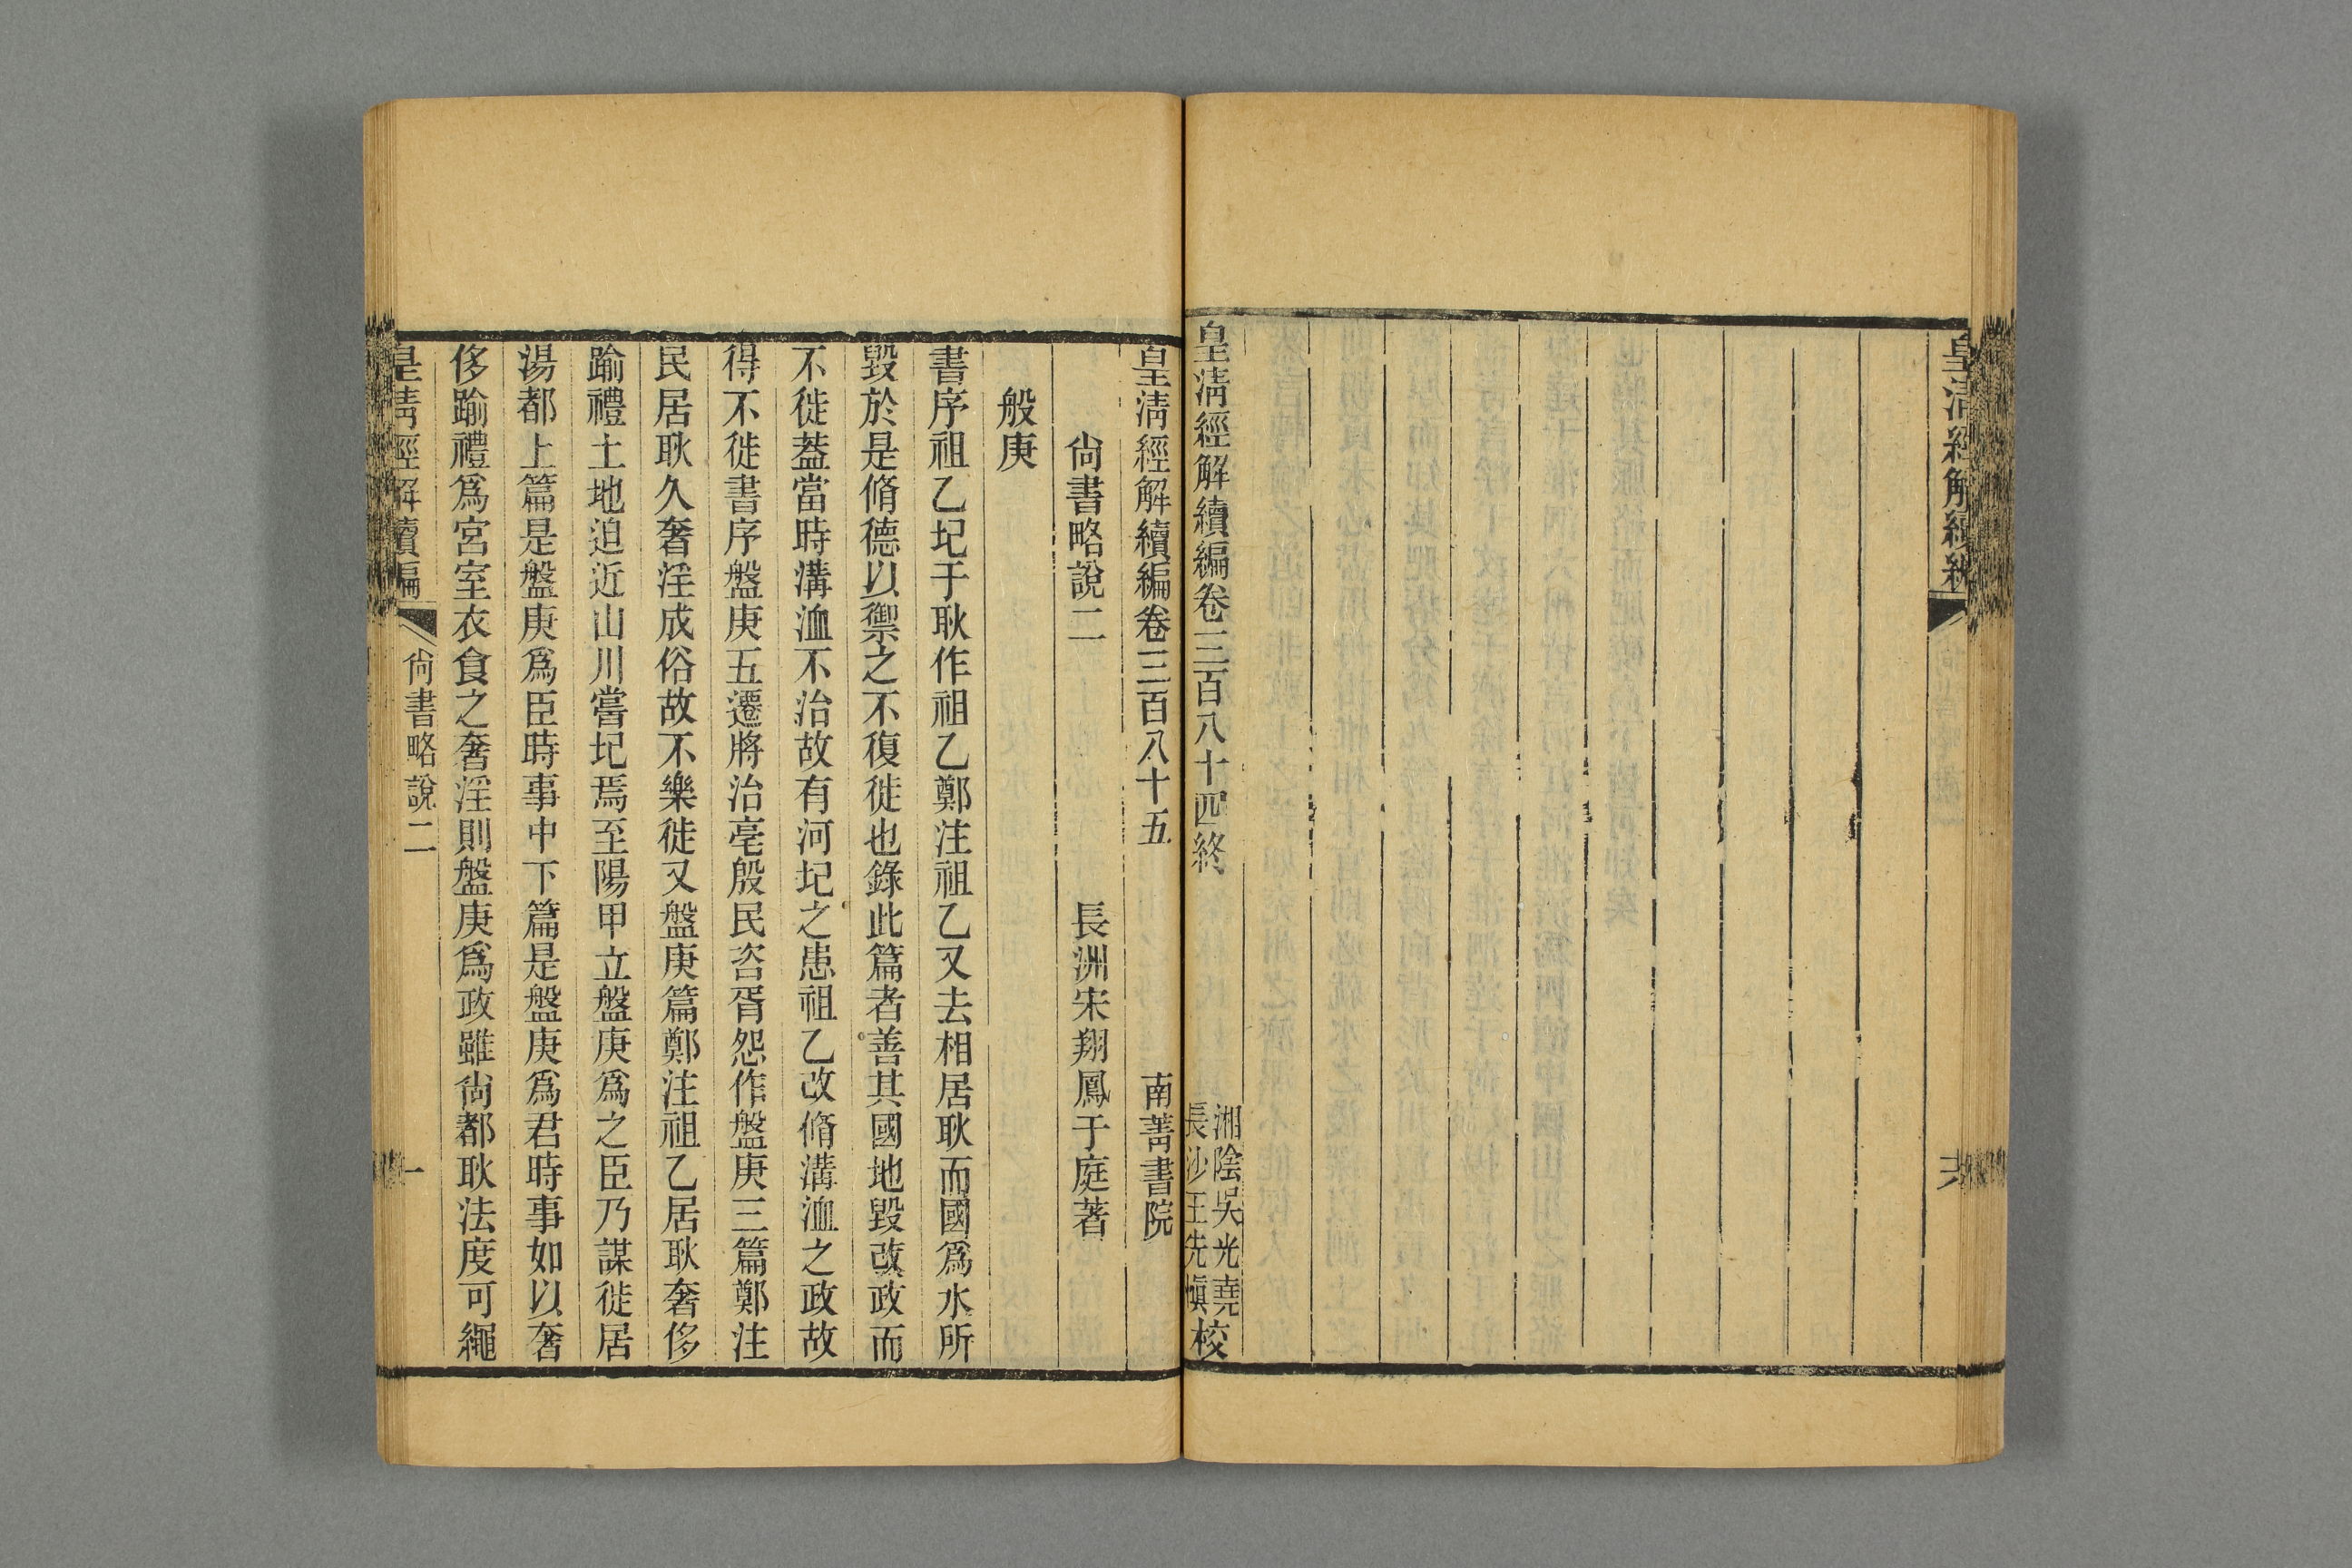 皇清經解續編
六
皇清經解續編卷三百八十四終
湘陰吳光堯
長沙王先愼
校
皇清經解續編卷三百八十五
南菁書院
尙書略說二
長洲宋翔鳳于庭著
般庚
書序祖乙圮于耿作祖乙鄭注祖乙又去相居耿而國爲水所
毀於是脩德以禦之不復徙也錄此篇者善其國地毀改政而
不徙葢當時溝洫不治故有河圮之患祖乙改脩溝洫之政故
得不徙書序盤庚五遷將治亳殷民咨胥怨作盤庚三篇鄭注
民居耿久奢淫成俗故不樂徙又盤庚篇鄭注祖乙居耿奢侈
踰禮土地迫近山川嘗圮焉至陽甲立盤庚爲之臣乃謀徙居
湯都上篇是盤庚爲臣時事中下篇是盤庚爲君時事如以奢
侈踰禮爲宮室衣食之奢淫則盤庚爲政雖尙都耿法度可繩
皇清經解續編
尙書略說二
一